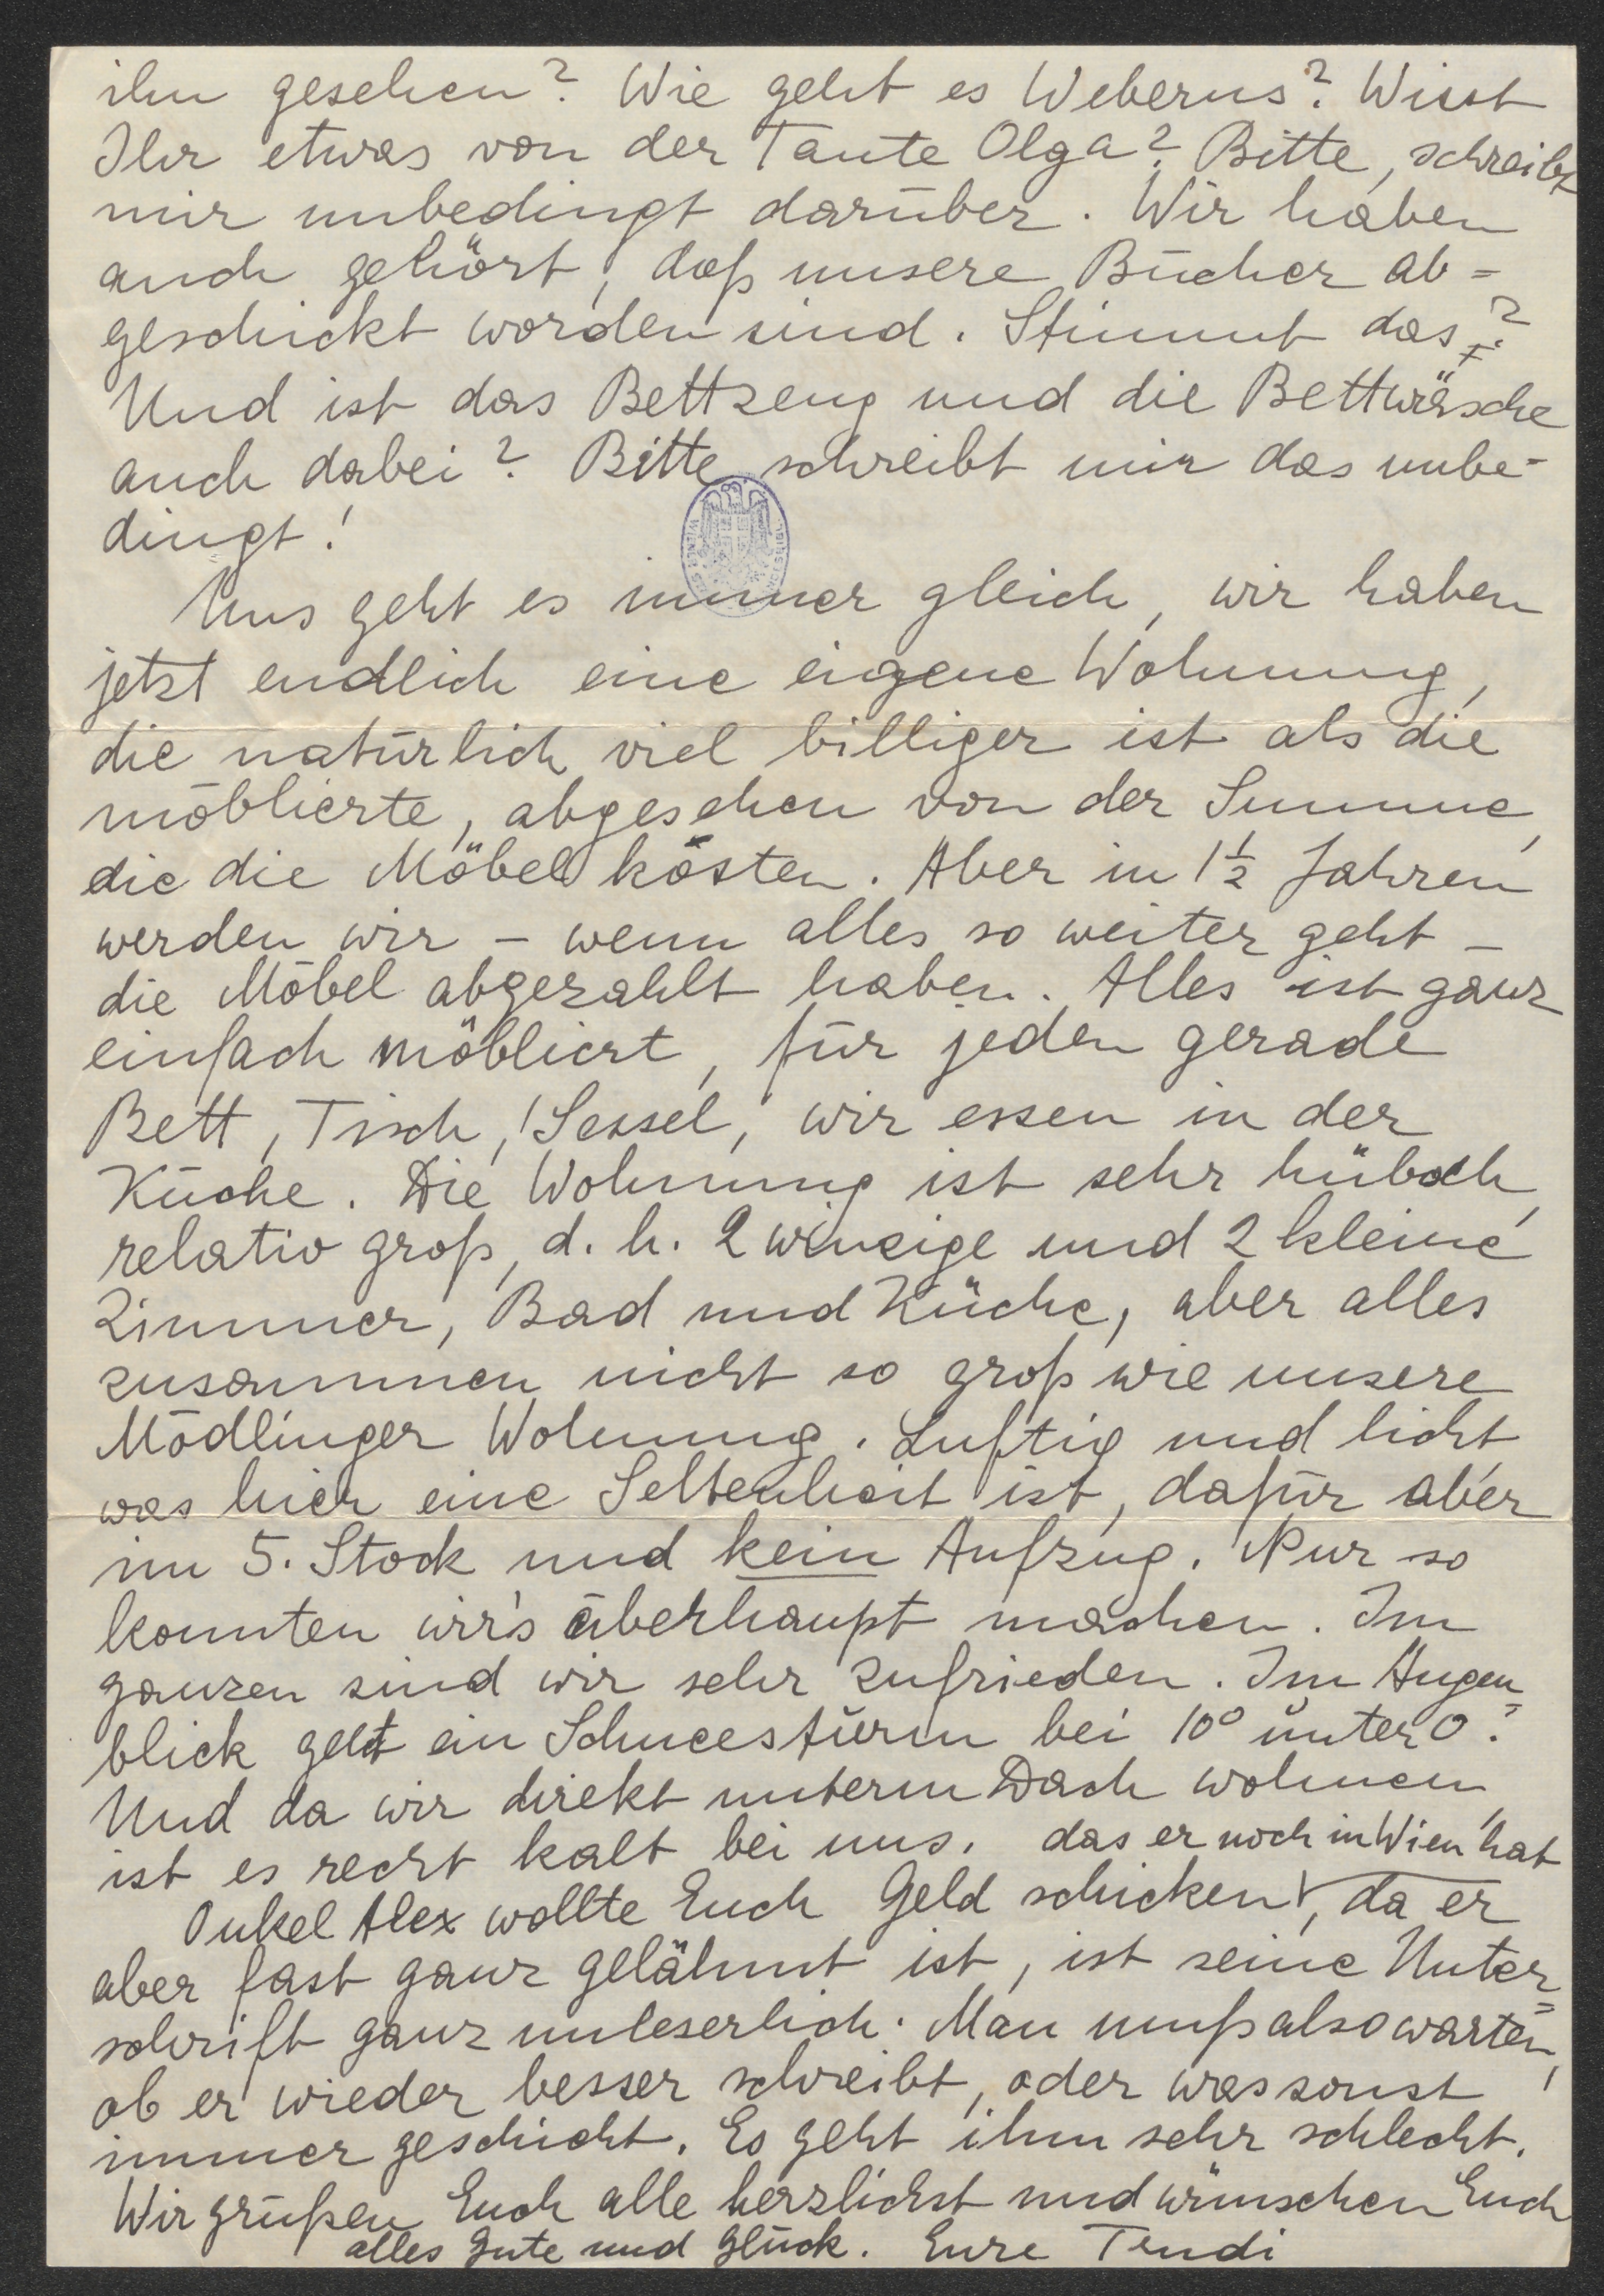 ihn gesehen? Wie geht es Weberns? Wisst
Ihr etwas von der Tante Olga? Bitte, schreibt
mir unbedingt darüber. Wir haben
auch gehört, daß unsere Bücher ab=
geschickt worden sind. Stimmt das?
Und ist das Bettzeug und die Bettwäsche
auch dabei? Bitte schreibt mir das unbe-
dingt!
Uns geht es immer gleich, wir haben
jetzt endlich eine eigene Wohnung,
die natürlich viel billiger ist als die
möblierte, abgesehen von der Summe,
die die Möbel kosten. Aber in 1½ Jahren
werden wir – wenn alles so weiter geht –
die Möbel abgezahlt haben. Alles ist ganz
einfach möbliert, für jeden gerade
Bett, Tisch, Sessel, wir essen in der
Küche. Die Wohnung ist sehr hübsch,
relativ groß, d. h. 2 winzige und 2 kleine
Zimmer, Bad und Küche, aber alles
zusammen nicht so groß wie unsere
Mödlinger Wohnung. Luftig und licht,
was hier eine Seltenheit ist, dafür aber
im 5. Stock und kein Aufzug. Nur so
konnten wir's überhaupt machen. Im
ganzen sind wir sehr zufrieden. Im Augen=
blick geht ein Schneesturm bei 10° unter 0.
Und da wir direkt unterm Dach wohnen,
ist es recht kalt bei uns.
das er noch in Wien hat
Onkel Alex wollte Euch Geld schicken, da er
aber fast ganz gelähmt ist, ist seine Unter=
schrift ganz unleserlich. Man muß also warten,
ob er wieder besser schreibt, oder was sonst
immer geschieht. Es geht ihm sehr schlecht.
Wir grüßen Euch alle herzlichst und wünschen Euch
alles Gute und Glück. Eure Trudi